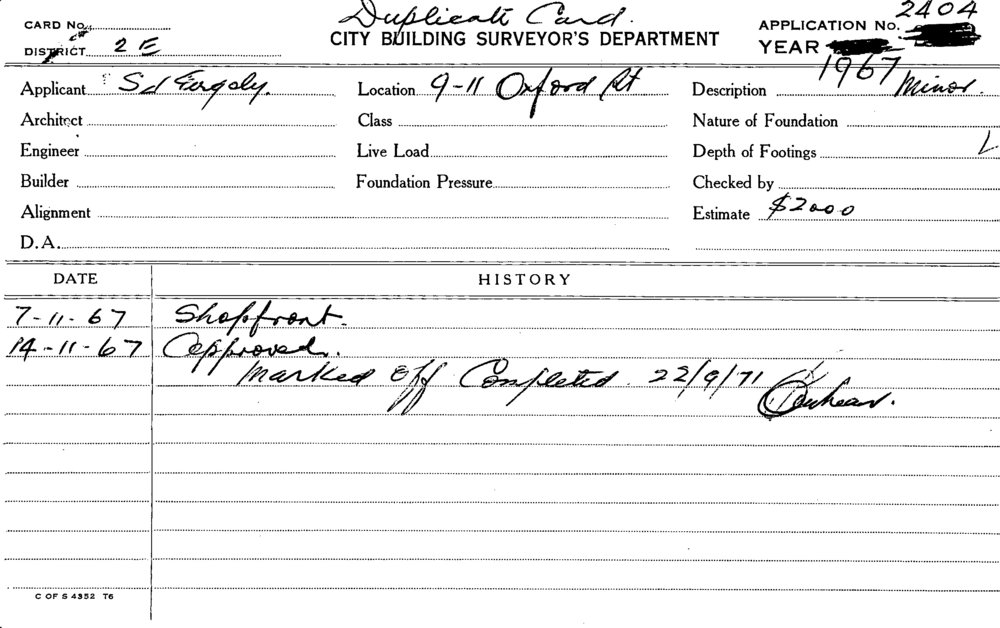 Duplicate Card.
CARD No.
CITY BUILDING SURVEYOR'S DEPARTMENT
APPLICATION No. 2404
DISTRICT 2 E
YEAR 1967
Applicant
Location 9-11 Oxford St
Description Minor.
Architect
Class
Nature of Foundation
Engineer
Live Load
Depth of Footings
Builder
Foundation Pressure
Checked by
Alignment
Estimate $2000
D.A.
DATE HISTORY
7-11-67 Shopfront.
14-11-67 Approved.
Marked Off Completed 22/9/71
C OF S 4352 T6